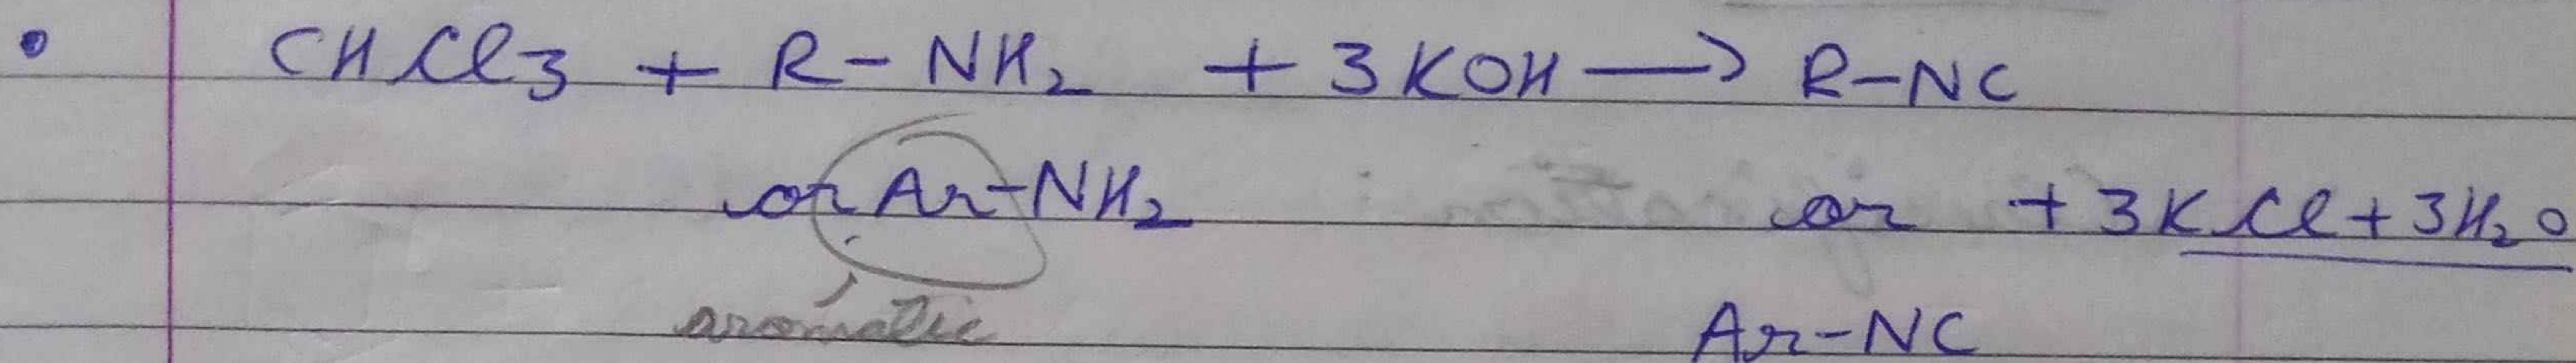 • CHCl3 + R-NH2 + 3KOH → R-NC
or Ar-NH2 or + 3KCl + 3H2O
aromatic
Ar-NC